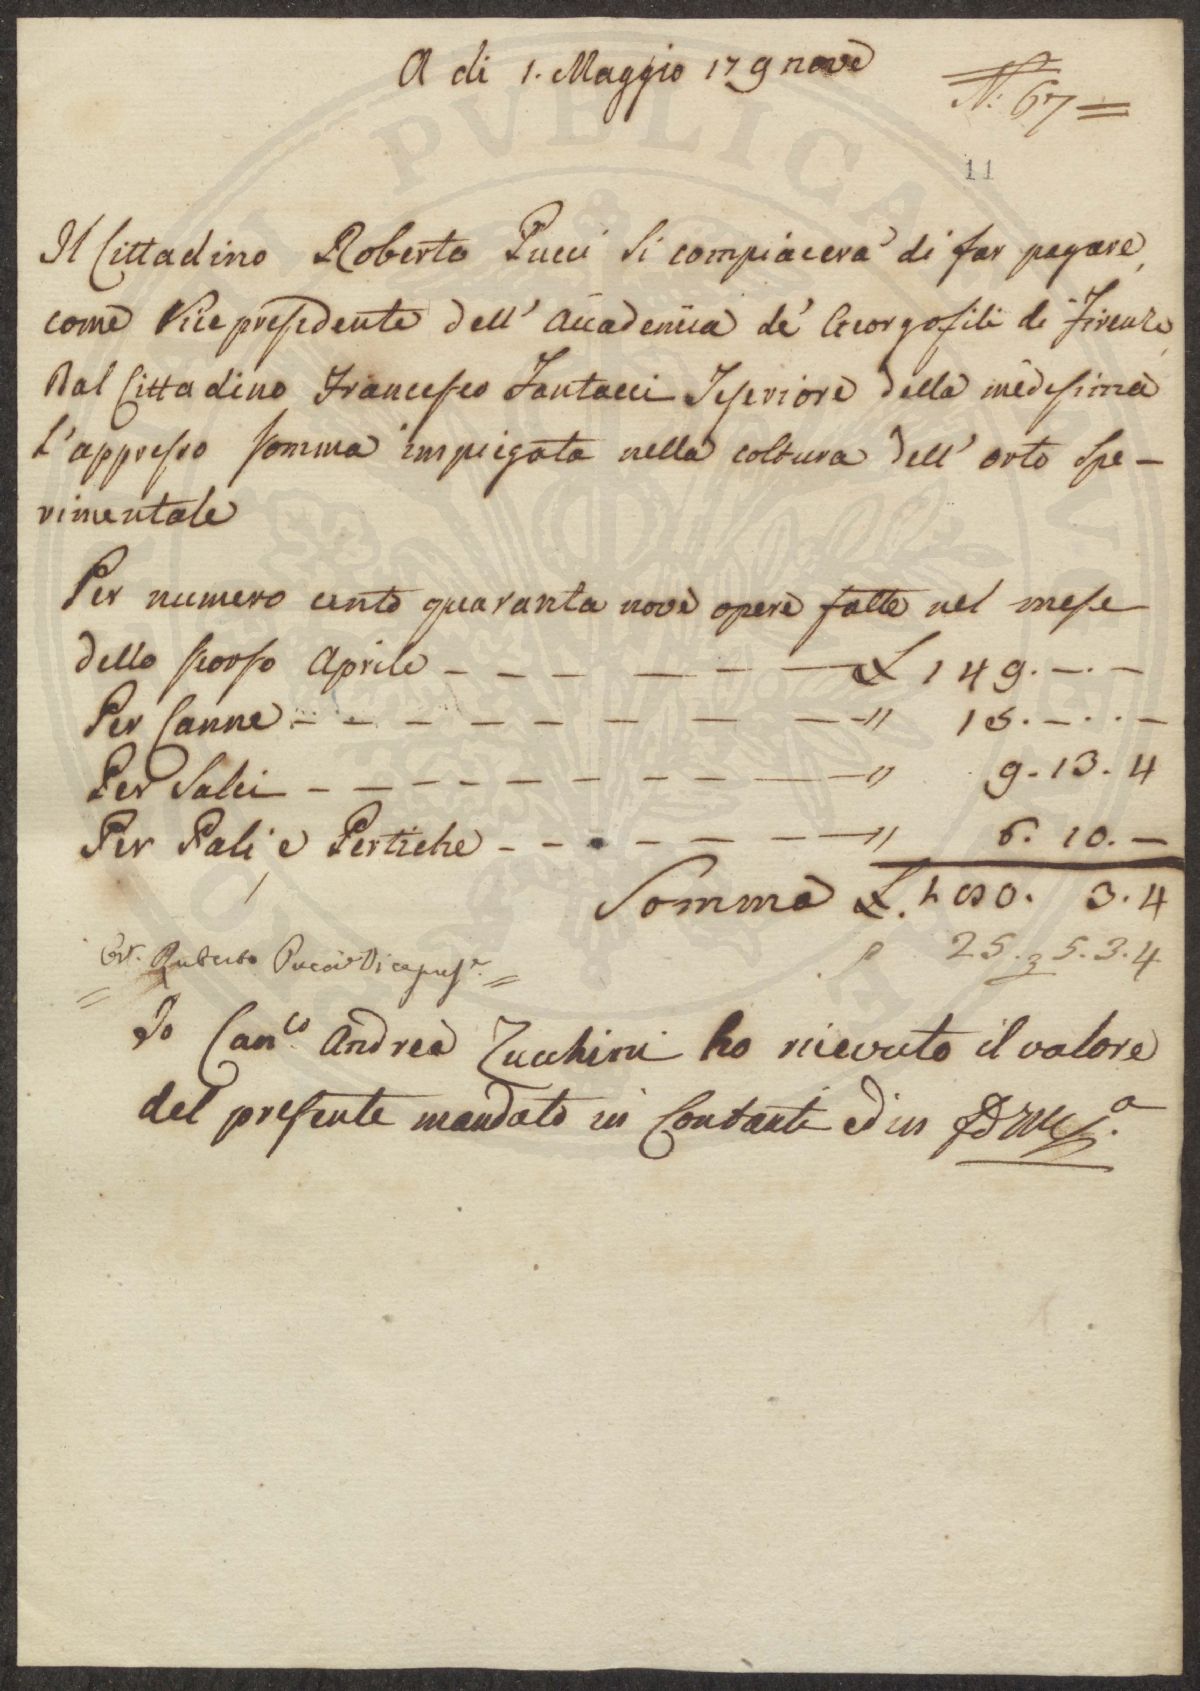 A di 1. Maggio 179nove
N.° 67
11
Il Cittadino Roberto Pucci si compiacerà di far pagare
come Vice presidente dell' Accademia de' Georgofili di Firenze
Dal Cittadino Francesco Fantacci Teseriore della medesima
l'appresso somma impiegata nella coltura dell' orto Spe-
rimentale
Per numero cento quaranta nove opere fatte nel mese
dello scorso Aprile £ 149. — . —
Per Canne " 15. — . . —
Per Salci " 9. 13. 4
Per Pali e Pertiche " 6. 10. —
Somma £. 180. 3. 4
25. 5. 3. 4
Roberto Pucci Vicepres.e
Io Can.co Andrea Zucchini ho ricevuto il valore
del presente mandato in Contanti ed in
PUBLICA